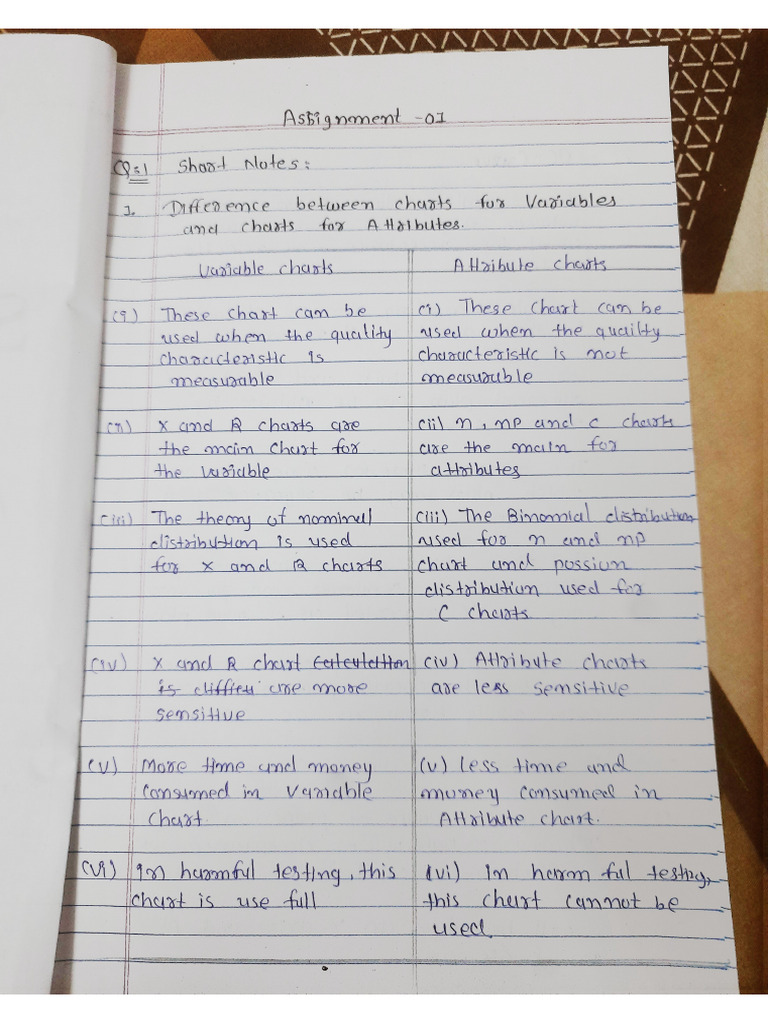 Assignment -01
Q:1 Short Notes:
1. Difference between charts for Variables
and charts for Attributes.
Variable charts
(i) These chart can be
used when the quality
characteristic is
measurable
(ii) X and R charts are
the main chart for
the variable
(iii) The theory of nominal
distribution is used
for X and R charts
(iv) X and R chart calculation
is are more
sensitive
(v) More time and money
consumed in Variable
chart.
(vi) In harmful testing, this
chart is use full
Attribute charts
(i) These chart can be
used when the quailty
characteristic is not
measurable
(ii) n, np and c charts
are the main for
attributes
(iii) The Binomial distribution
used for n and np
chart and possion
distribution used for
C charts
(iv) Attribute charts
are less sensitive
(v) less time and
money consumed in
Attribute chart.
(vi) In harm ful testing,
this chart cannot be
used.